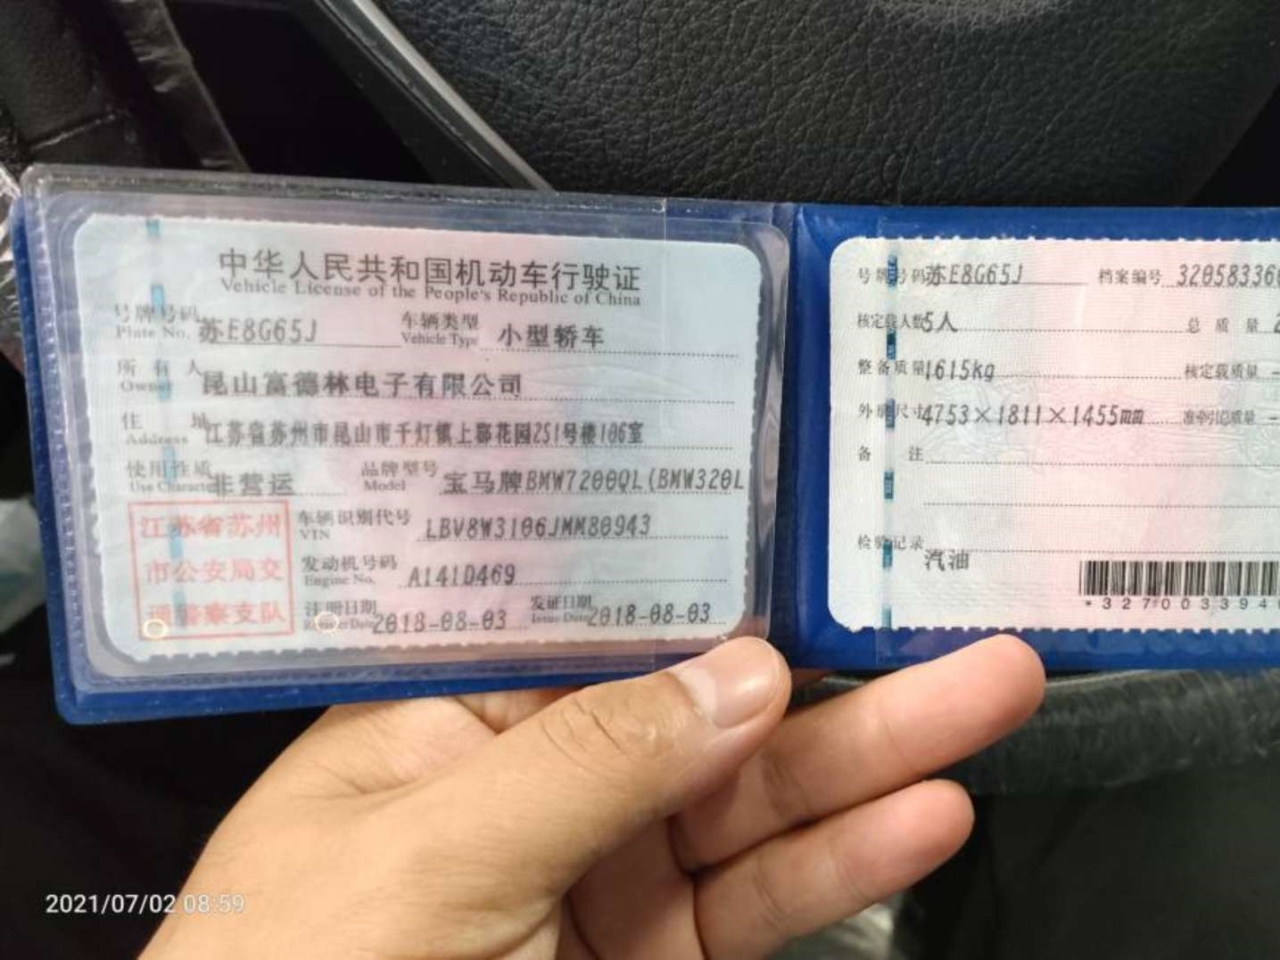 中华人民共和国机动车行驶证
Vehicle License of the People's Republic of China
号牌号码 苏E8G65J 车辆类型 小型轿车
Plate No. Vehicle Type
所有人 昆山富德林电子有限公司
Owner
住址 江苏省苏州市昆山市千灯镇上郡花园251号楼106室
Address
使用性质 非营运 品牌型号 宝马牌BMW7200QL(BMW320L
Use Character Model
江苏省苏州
市公安局交
通警察支队
车辆识别代号 LBV8W3106JMM80943
VIN
发动机号码 A141D469
Engine No.
注册日期 2018-08-03 发证日期 2018-08-03
Register Date Issue Date
号牌号码 苏E8G65J 档案编号 320583360
核定载人数 5人 总质量 2
整备质量 1615kg 核定载质量 -
外廓尺寸 4753×1811×1455mm 准牵引总质量 -
备注
检验记录
汽油
*3270033940
2021/07/02 08:59